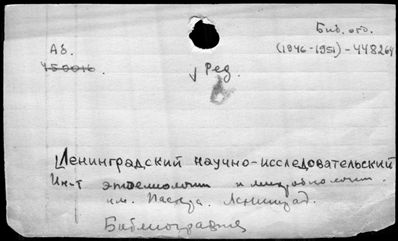 Биб. ото.
Аз. (1946-1951)-448264
45-0016 . √ Ред.
Ленинградский научно-исследовательский
Ин-т эпидемиологии и микробиологии
им. Пастера. Ленинград.
Библиография